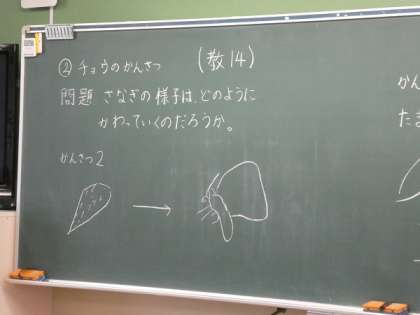 ② チョウのかんさつ (教14)
問題 さなぎの様子は、どのように
かわっていくのだろうか。
かんさつ2
かん
たま